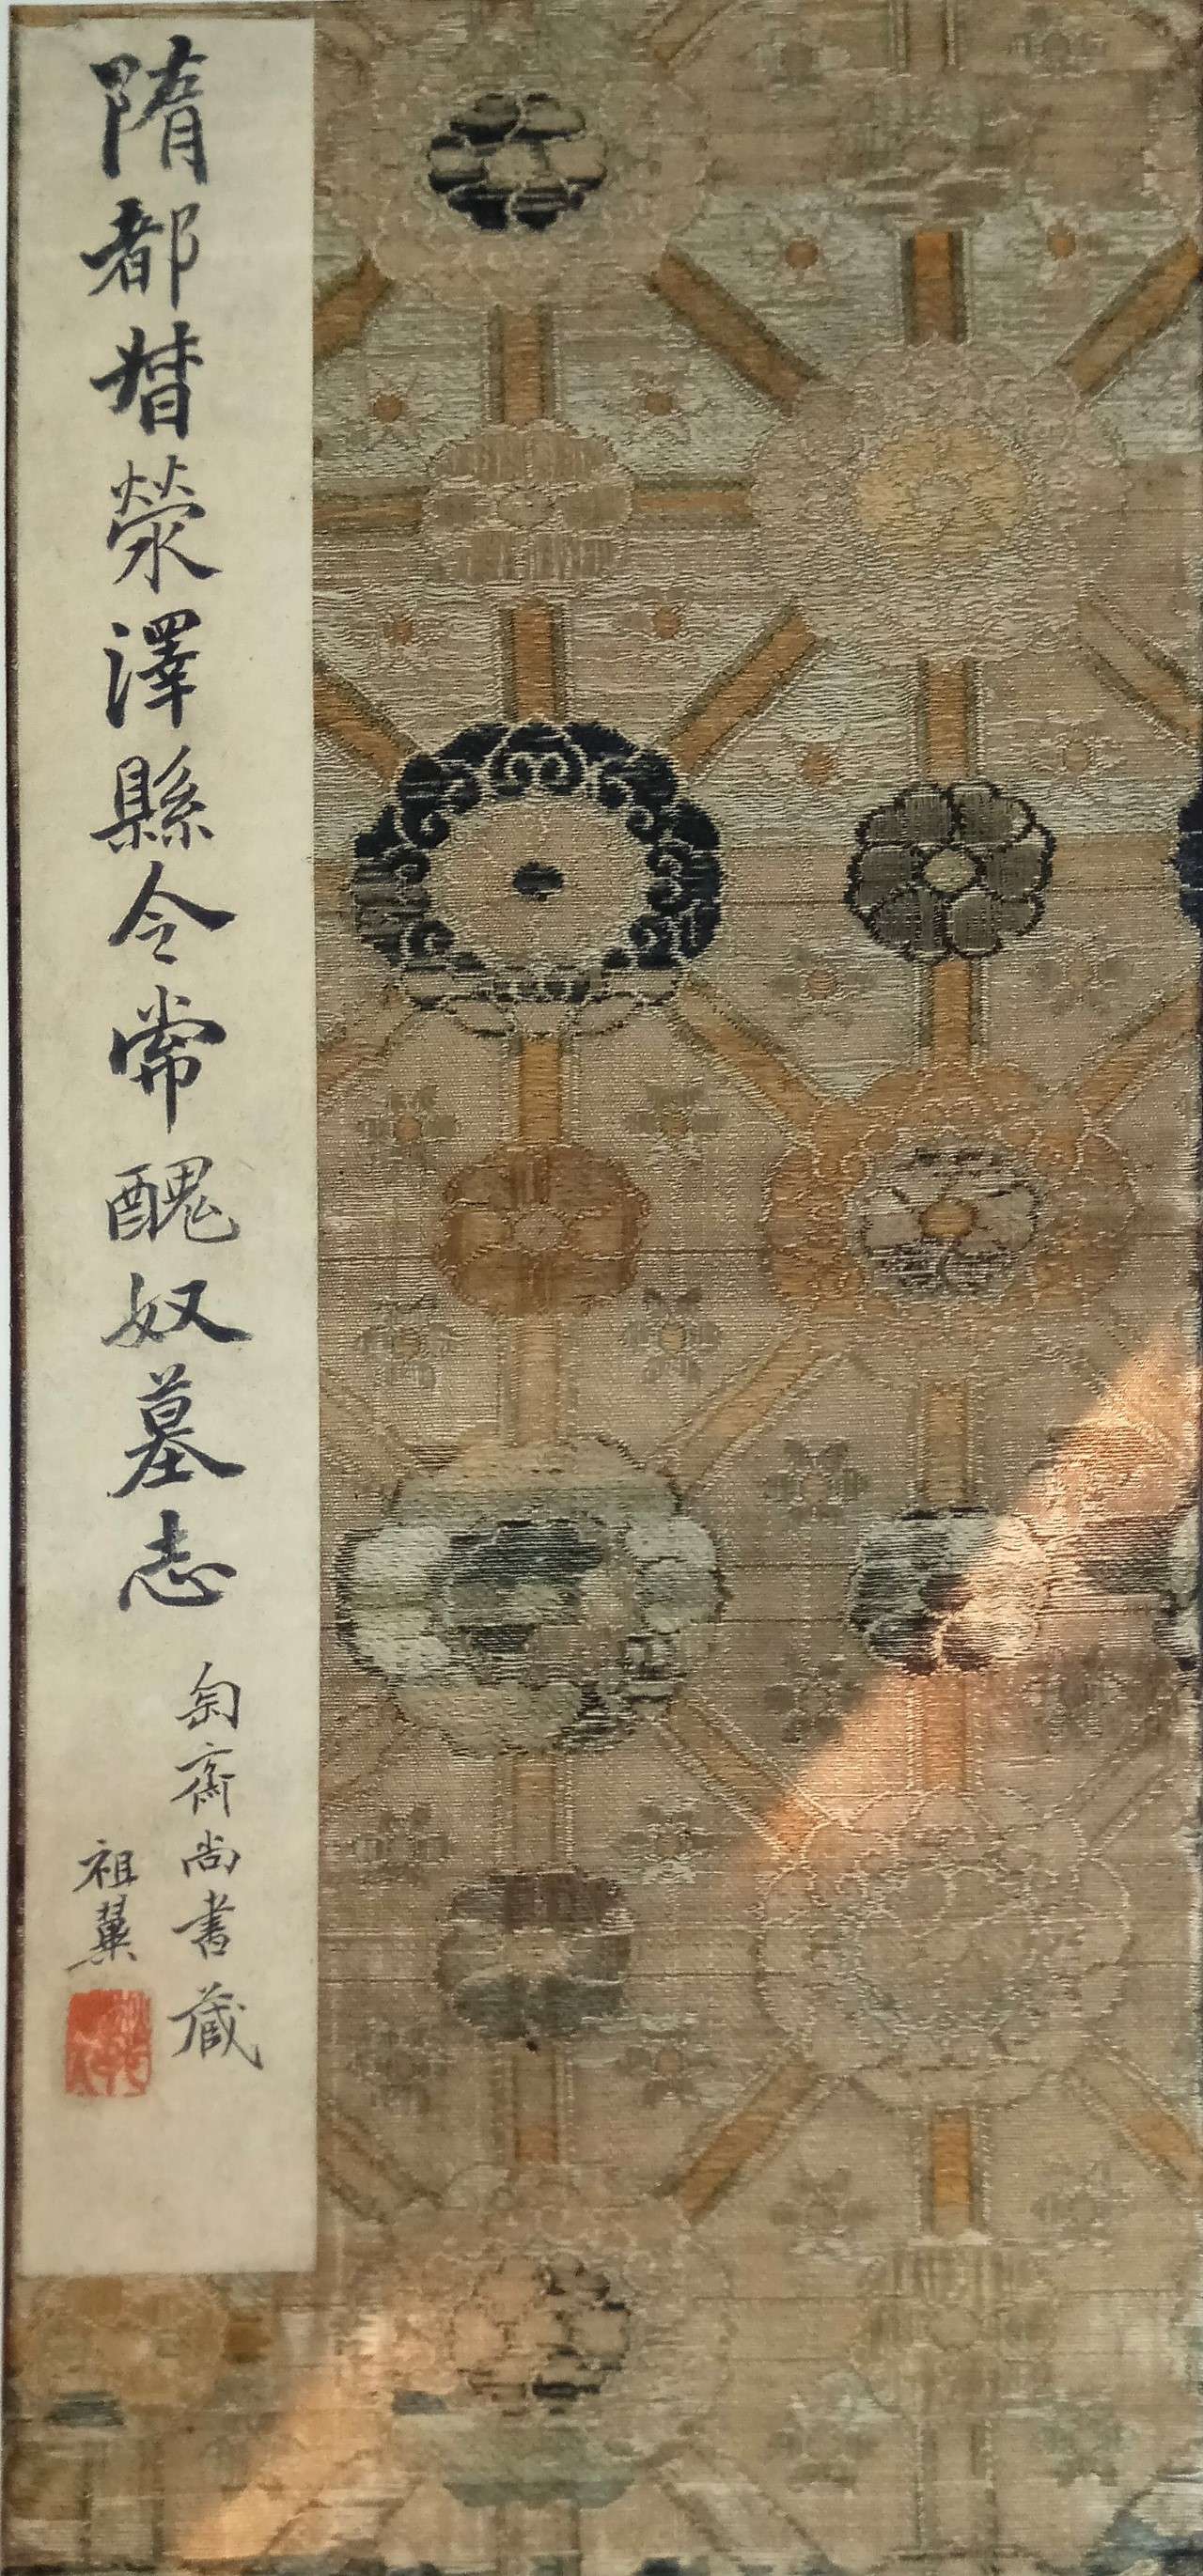 隋都督滎澤縣令常醜奴墓志
匋齋尚書藏
祖翼